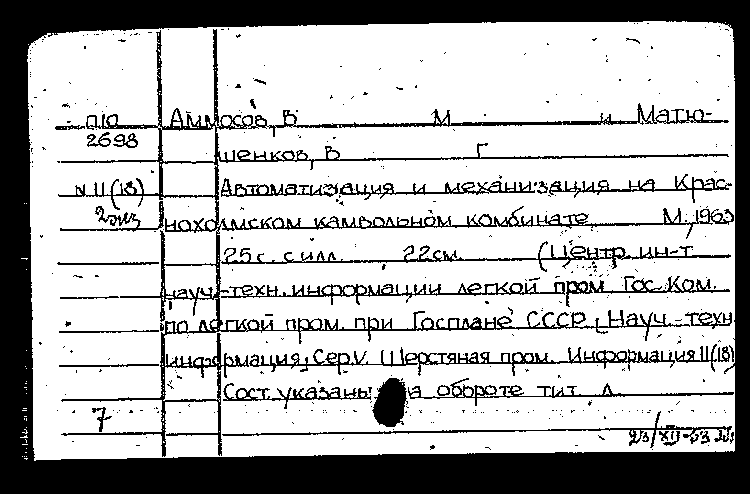 п/о Аммосов, В М и Матю-
2698
шенков, В Г
N 11(18) Автоматизация и механизация на Крас-
2экз нохолмском камвольном комбинате М, 1963
25 с. с илл. 22 см. (Центр. ин-т
науч.-техн. информации легкой пром Гос. Ком.
по легкой пром. при Госплане СССР [Науч.-техн
информация] Сер. V. Шерстяная пром. Информация 11(18)
Сост. указаны а обороте тит. л.
7
23/XII-63